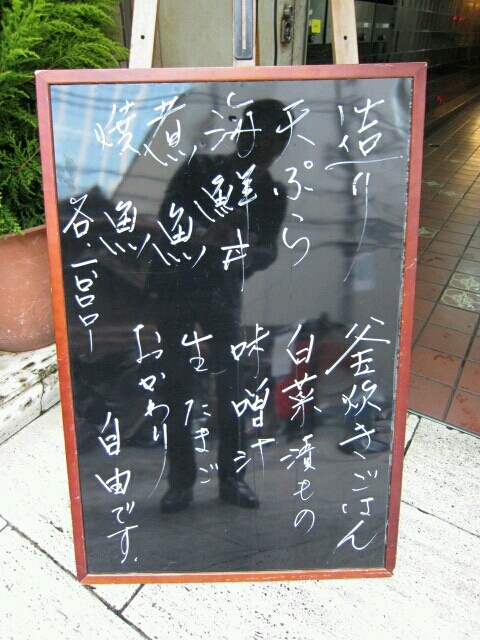 造り
天ぷら
海鮮丼
煮魚
焼魚
各、一000ー
釜炊きごはん
白菜漬もの
味噌汁
生たまご
おかわり
自由です.